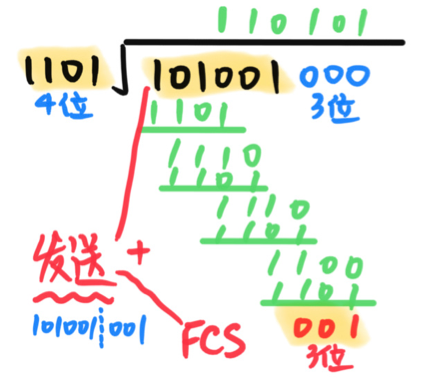 110101
1101 101001 000
4位 3位
1101
1110
1101
1110
1101
1100
1101
发送 +
001
101001 001
FCS
3位